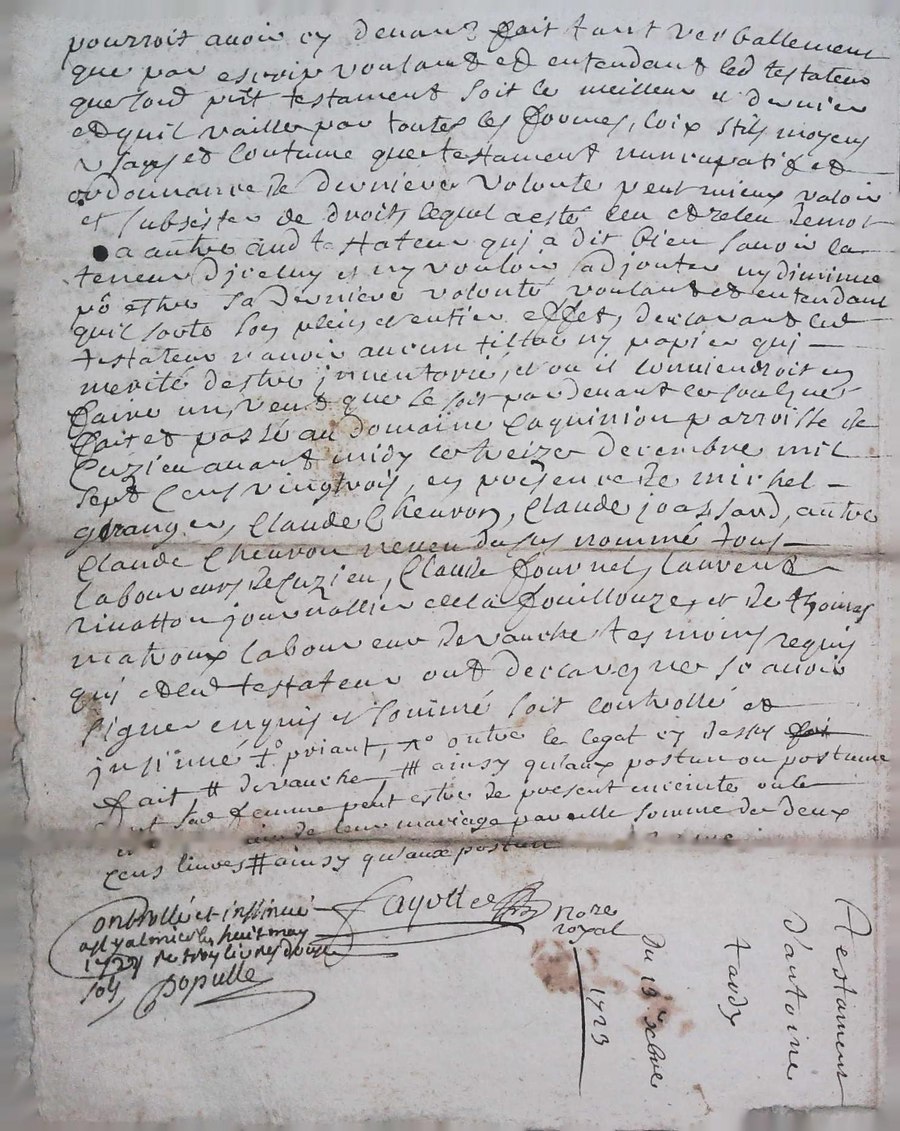 pourroit avoir cy devant fait tant verballement
que par escrip voulant et entendant led testateur
que sond pnt testament soit le meilleur et dernier
et quil vaille par toutes les formes, loix stils moyens
usages et coutume que testament nuncupatif et
ordonnance de derniere volonte peut mieux valoir
et subsister de droit, lequel a esté leu et releu de mot
a autre aud testateur qui a dit bien savoir la
teneur dicelluy et ny vouloir adjouter ny diminue
po estre sa derniere volonté voulant et entendant
quil sorte son plein et entier effet, declarant led
testateur navoir aucun tiltre ny papier qui
merité destre inventorié, et ou il conviendroit en
faire un veut que ce soit par devant les
fait et passé au domaine Laquinion parroisse de
Cuzieu avant midy le treize decembre mil
sept cens vingtrois, en presence de michel
granger, Claude Chevron, Claude joassard, autre
Claude Chevron neveu du sus nommé tous
laboureurs de Cuzieu, Claude fournel, laurent
rivatton journallier de la fouillouze, et de thomas
matroux laboureur de vauche tesmoins requis
qui et led testateur ont declaré ne scavoir
signer enquis et sommé soit controllé et
insinué priant, outre le legat cy dessus
fait # de vauche, # ainsy qu'aux postun ou postume
sad femme peut estre de present enceinte
de leur mariage pareille somme de deux
cens livres # ainsy qu'aux postun
Fayolle
no.re
royal
Controllé et insinué
a St galmier le huit may
1724 re trois livres douze
sols Populle
Testament
d'antoine
tardy
Du 13 xbre
1723